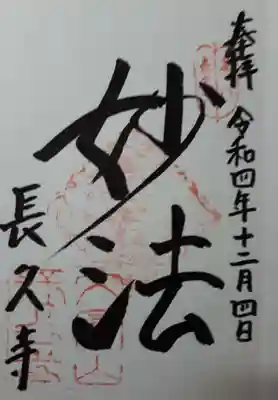 奉拝 令和四年十二月四日
妙法
長久寺